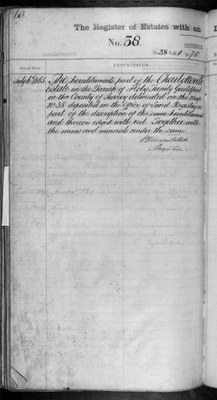 The Register of Estates with an
No. 38.
DESCRIPTION
The hereditaments part of the Charlotteville
Estate in the Parish of Holy Trinity Guildford
in the County of Surrey delineated on the Map
No 38 deposited in the Office of Land Registry as
part of the description of the same hereditaments
and thereon edged with red Together with
the mines and minerals under the same